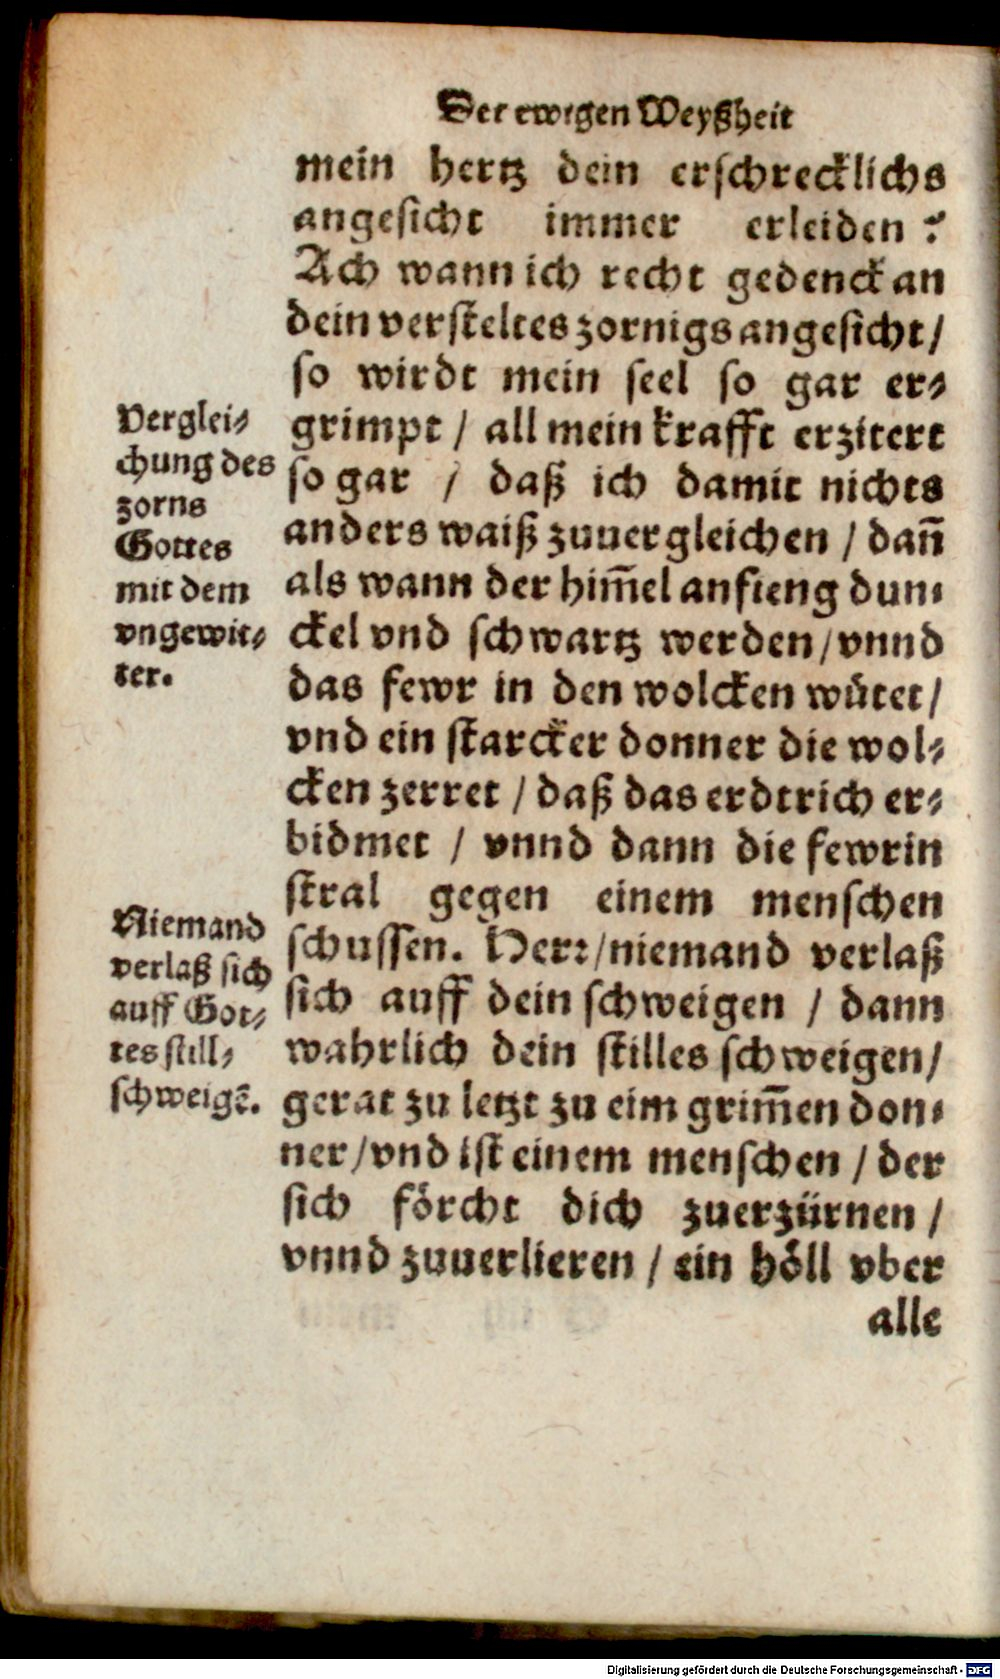 Der ewigen Weyßheit
mein hertz dein erschrecklichs
angesicht immer erleiden?
Ach wann ich recht gedenck an
dein versteltes zornigs angesicht/
so wirdt mein seel so gar er⸗
grimpt / all mein krafft erzitert
so gar / daß ich damit nichts
anders waiß zuuergleichen / dañ
als wann der him̃el anfieng dun⸗
ckel vnd schwartz werden/vnnd
das fewr in den wolcken wůtet/
vnd ein starcker donner die wol⸗
cken zerret / daß das erdtrich er⸗
bidmet / vnnd dann die fewrin
stral gegen einem menschen
schussen. Herr/niemand verlaß
sich auff dein schweigen / dann
wahrlich dein stilles schweigen/
gerat zu letzt zu eim grim̃en don⸗
ner/vnd ist einem menschen / der
sich förcht dich zuerzürnen /
vnnd zuuerlieren / ein höll vber
alle
Verglei⸗
chung des
zorns
Gottes
mit dem
vngewit⸗
ter.
Niemand
verlaß sich
auff Got⸗
tes still⸗
schweigẽ.
Digitalisierung gefördert durch die Deutsche Forschungsgemeinschaft - DFG